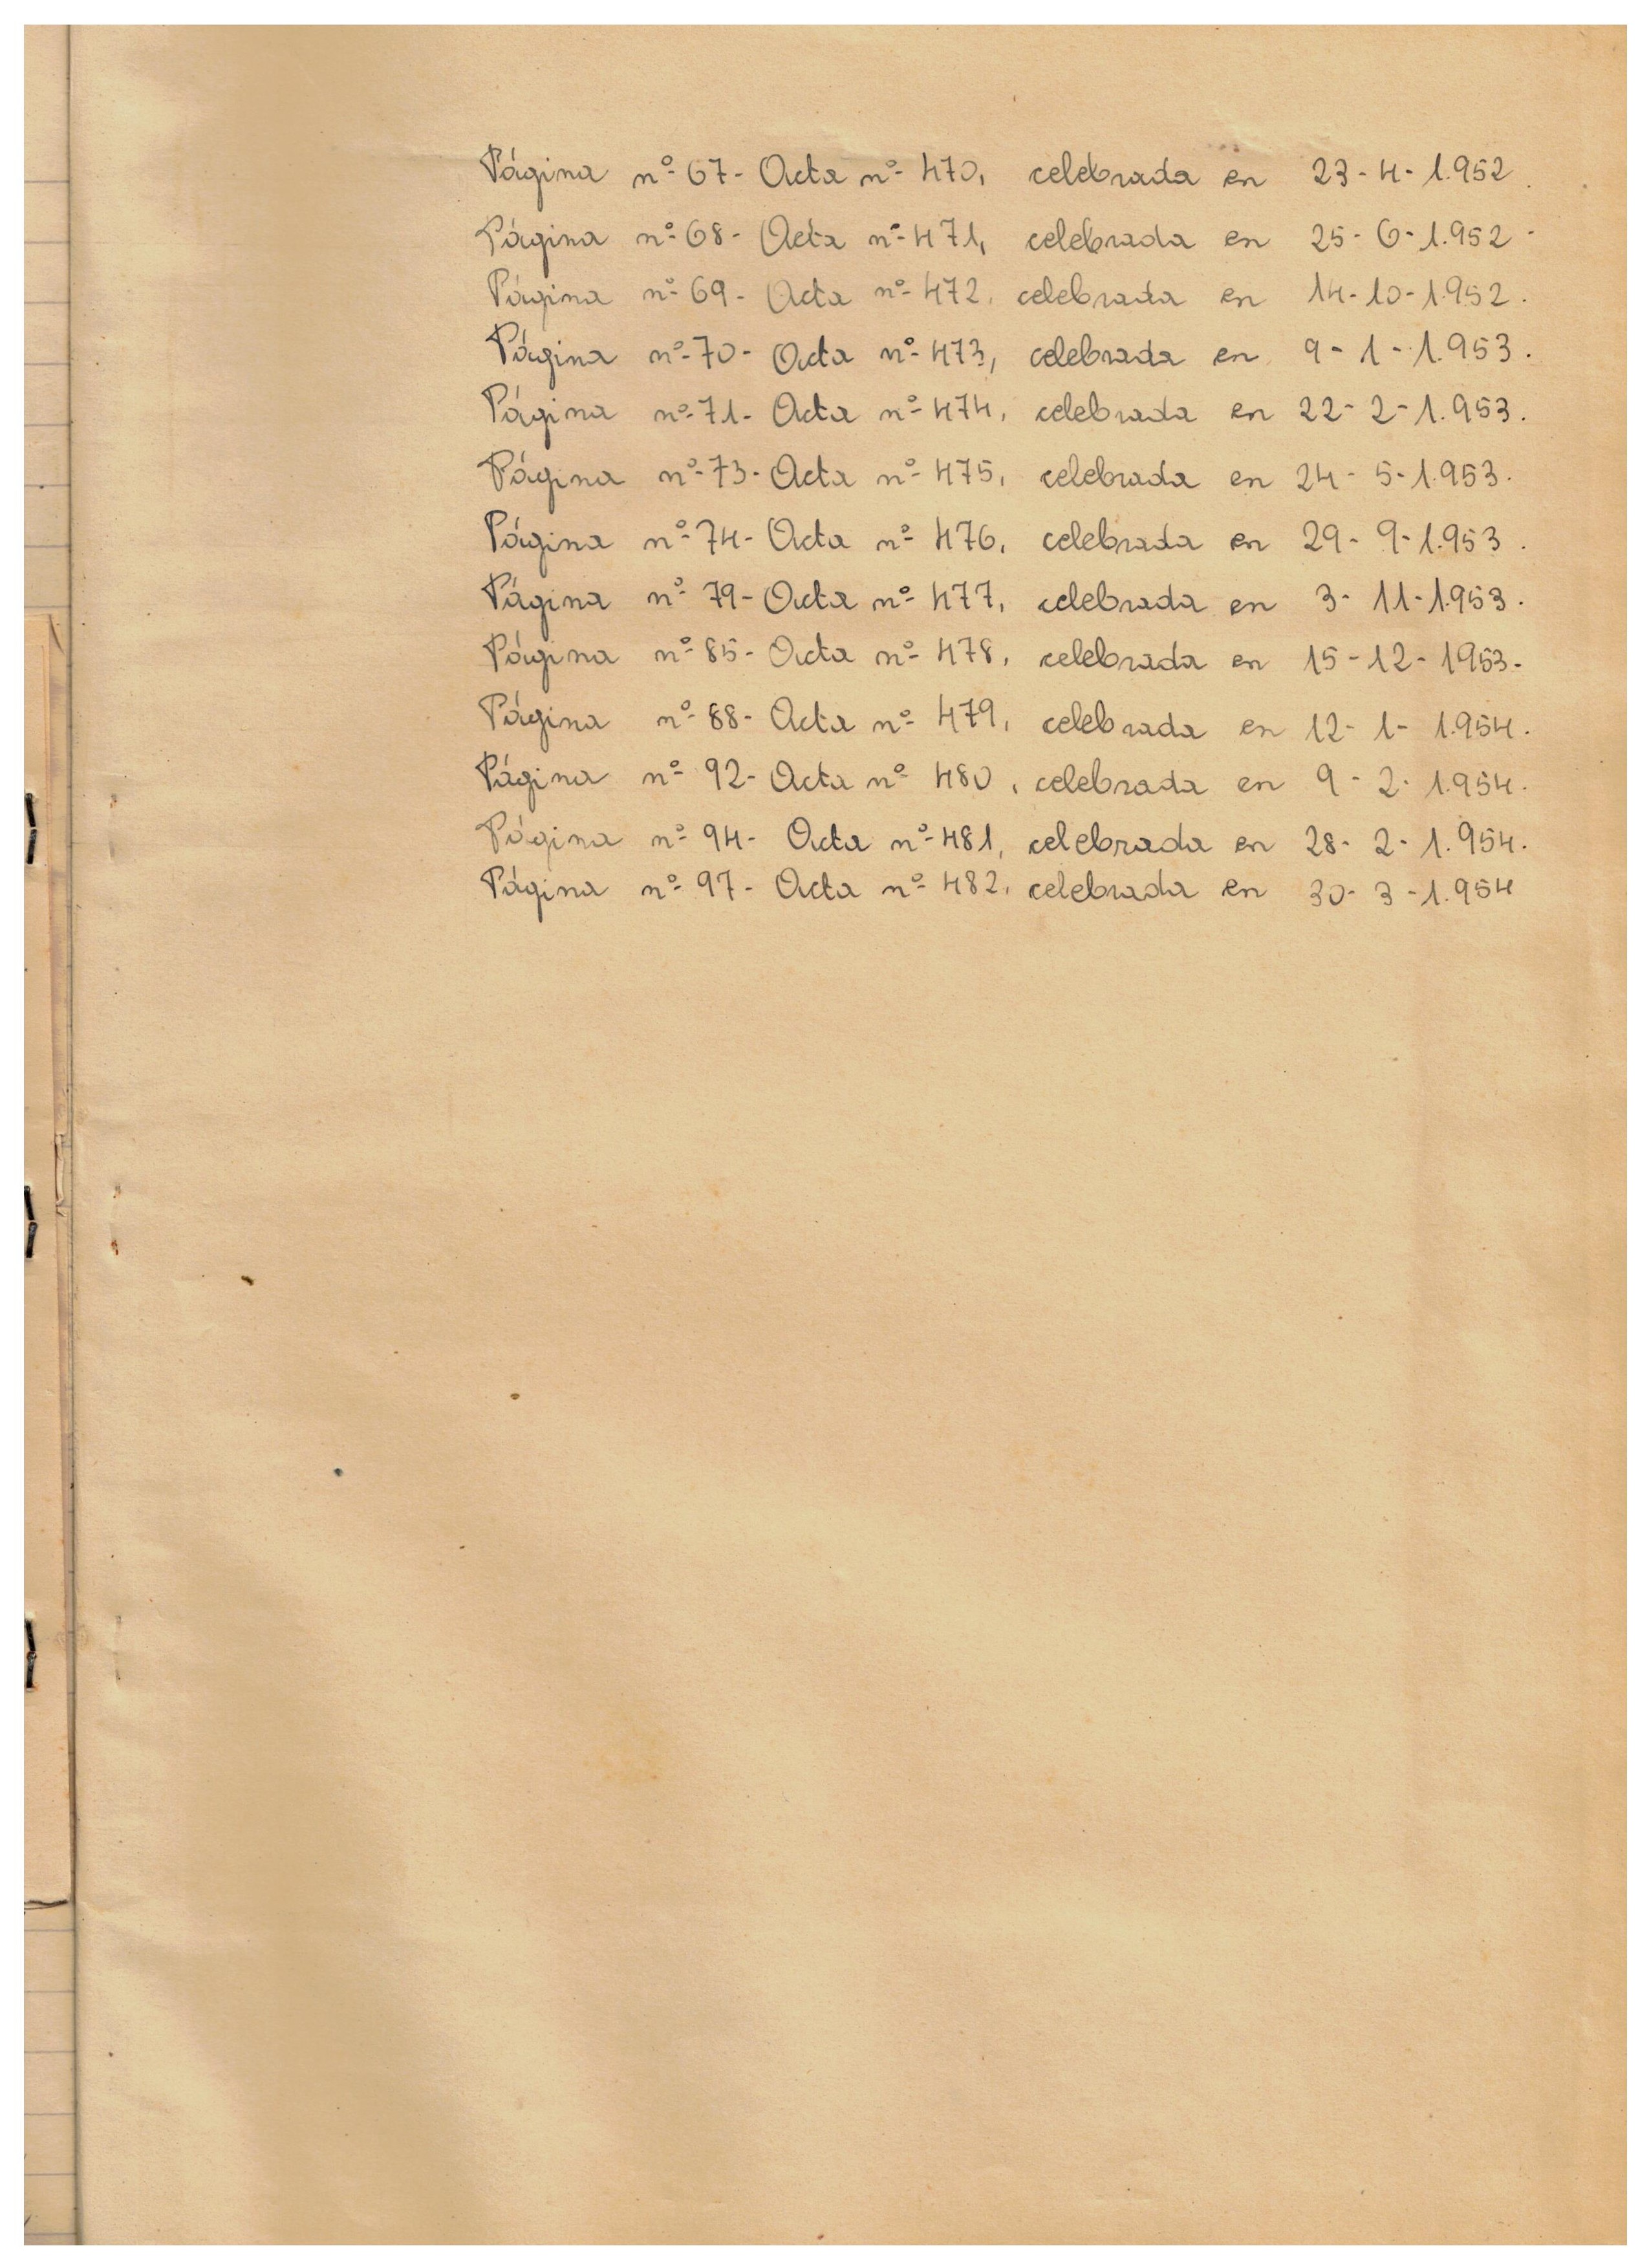 Página nº 67- Acta nº 470, celebrada en 23-4-1.952.
Página nº 68- Acta nº 471, celebrada en 25-6-1.952-
Página nº 69- Acta nº 472, celebrada en 14-10-1.952.
Página nº 70- Acta nº 473, celebrada en 9-1-1.953.
Página nº 71- Acta nº 474, celebrada en 22-2-1.953.
Página nº 73- Acta nº 475, celebrada en 24-5-1.953.
Página nº 74- Acta nº 476, celebrada en 29-9-1.953.
Página nº 79- Acta nº 477, celebrada en 3-11-1.953.
Página nº 85- Acta nº 478, celebrada en 15-12-1953-
Página nº 88- Acta nº 479, celebrada en 12-1-1.954.
Página nº 92- Acta nº 480, celebrada en 9-2-1.954.
Página nº 94- Acta nº 481, celebrada en 28-2-1.954.
Página nº 97- Acta nº 482, celebrada en 30-3-1.954